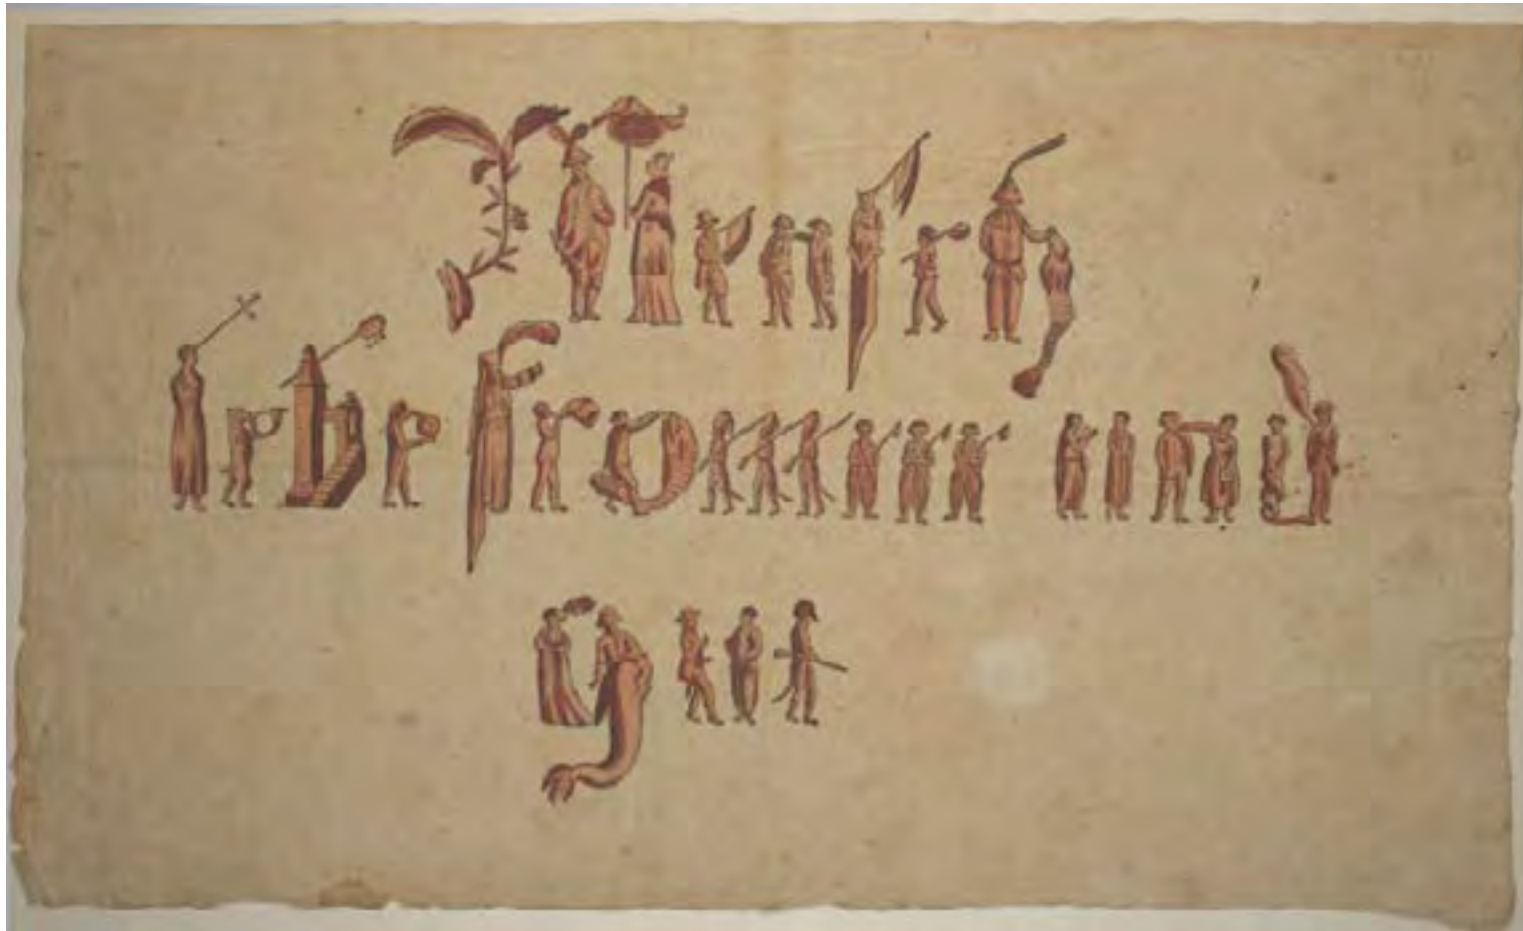 Mensch
lebe fromm und
gut